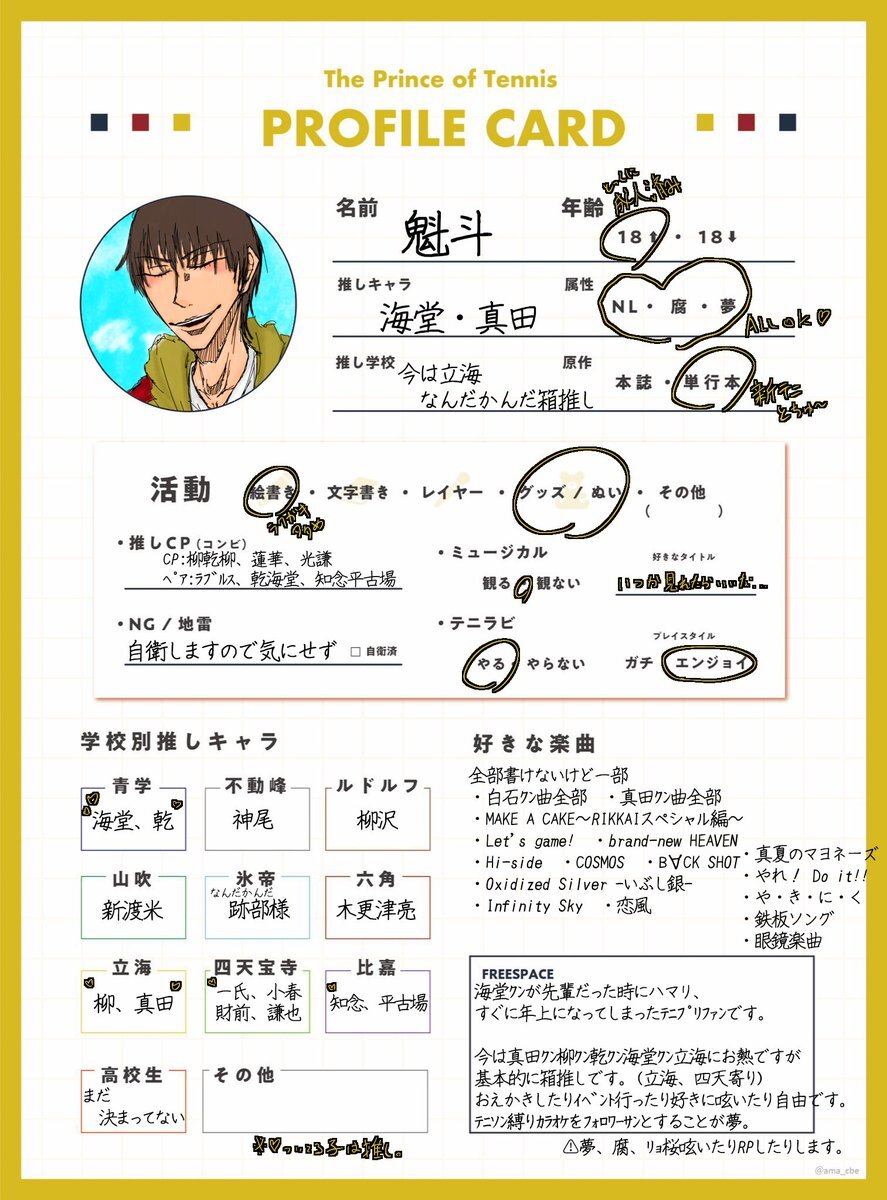 The Prince of Tennis
PROFILE CARD
名前
魁斗
年齢
とっくに
成人済み
18⬆・18⬇
推しキャラ
海堂・真田
属性
NL・腐・夢
ALL OK♡
推し学校
今は立海
なんだかんだ箱推し
原作
本誌・単行本
新テニ
とちゅ〜
活動
絵書き・文字書き・レイヤー・グッズ / ぬい・その他
( )
ラクガキ
タタめ
・推しCP(コンビ)
CP:柳乾柳、蓮華、光謙
ペア:ラブルス、乾海堂、知念平古場
・ミュージカル
観る・観ない
好きなタイトル
いつか見れたらいいな...
・NG / 地雷
自衛しますので気にせず
□ 自衛済
・テニラビ
やる・やらない
プレイスタイル
ガチ・エンジョイ
学校別推しキャラ
青学
♡海堂、乾♡
不動峰
神尾
ルドルフ
柳沢
山吹
新渡米
氷帝
なんだかんだ
跡部様
六角
木更津亮
立海
♡柳、真田♡
四天宝寺
♡一氏、小春
財前、謙也
比嘉
♡知念、平古場
高校生
まだ
決まってない
その他
※♡ついてる子は推し。
好きな楽曲
全部書けないけど一部
・白石クン曲全部 ・真田クン曲全部
・MAKE A CAKE〜RIKKAIスペシャル編〜
・Let's game! ・brand-new HEAVEN
・Hi-side ・COSMOS ・B∀CK SHOT
・Oxidized Silver -いぶし銀-
・Infinity Sky ・恋風
・真夏のマヨネーズ
・やれ! Do it!!
・や・き・に・く
・鉄板ソング
・眼鏡楽曲
FREESPACE
海堂クンが先輩だった時にハマリ、
すぐに年上になってしまったテニプリファンです。
今は真田クン柳クン乾クン海堂クン立海にお熱ですが
基本的に箱推しです。(立海、四天寄り)
おえかきしたりイベント行ったり好きに呟いたり自由です。
テニソン縛りカラオケをフォロワーサンとすることが夢。
⚠夢、腐、リョ桜呟いたりRPしたりします。
@ama_cbe